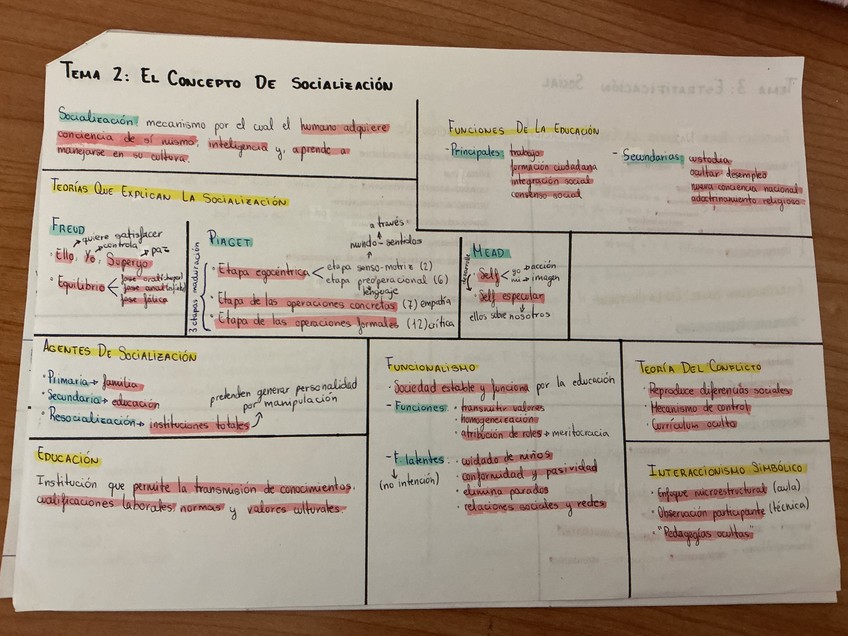 TEMA 2: EL CONCEPTO DE SOCIALIZACIÓN
Socialización: mecanismo por el cual el humano adquiere
conciencia de sí mismo, inteligencia y, aprende a
manejarse en su cultura.
FUNCIONES DE LA EDUCACIÓN
- Principales: trabajo
formación ciudadana
integración social
consenso social
- Secundarias: custodia
ocultar desempleo
nueva conciencia nacional
adoctrinamiento religioso
TEORÍAS QUE EXPLICAN LA SOCIALIZACIÓN
FREUD
quiere satisfacer
controla
paz
· Ello, Yo, Superyo
· Equilibrio
fase oral
fase anal
fase fálica
PIAGET
3 etapas maduración
a través
mundo - sentidos
· Etapa egocéntrica
etapa senso-motriz (2)
etapa preoperacional (6)
lenguaje
· Etapa de las operaciones concretas (7) empatía
· Etapa de las operaciones formales (12) crítica
MEAD
desarrolla
· Self
yo → acción
mi → imagen
· Self especular
ellos sobre nosotros
AGENTES DE SOCIALIZACIÓN
· Primaria → familia
· Secundaria → educación
· Resocialización → instituciones totales
pretenden generar personalidad
por manipulación
EDUCACIÓN
Institución que permite la transmisión de conocimientos,
cualificaciones laborales, normas y valores culturales.
FUNCIONALISMO
· Sociedad estable y funciona por la educación
- Funciones · transmitir valores
· homogeneización
· atribución de roles → meritocracia
- F. latentes: · cuidado de niños
(no intención)
· conformidad y pasividad
· elimina parados
· relaciones sociales y redes
TEORÍA DEL CONFLICTO
· Reproduce diferencias sociales
· Mecanismo de control
· Currículum oculto
INTERACCIONISMO SIMBÓLICO
· Enfoque microestructural (aula)
· Observación participante (técnica)
· "Pedagogías ocultas"